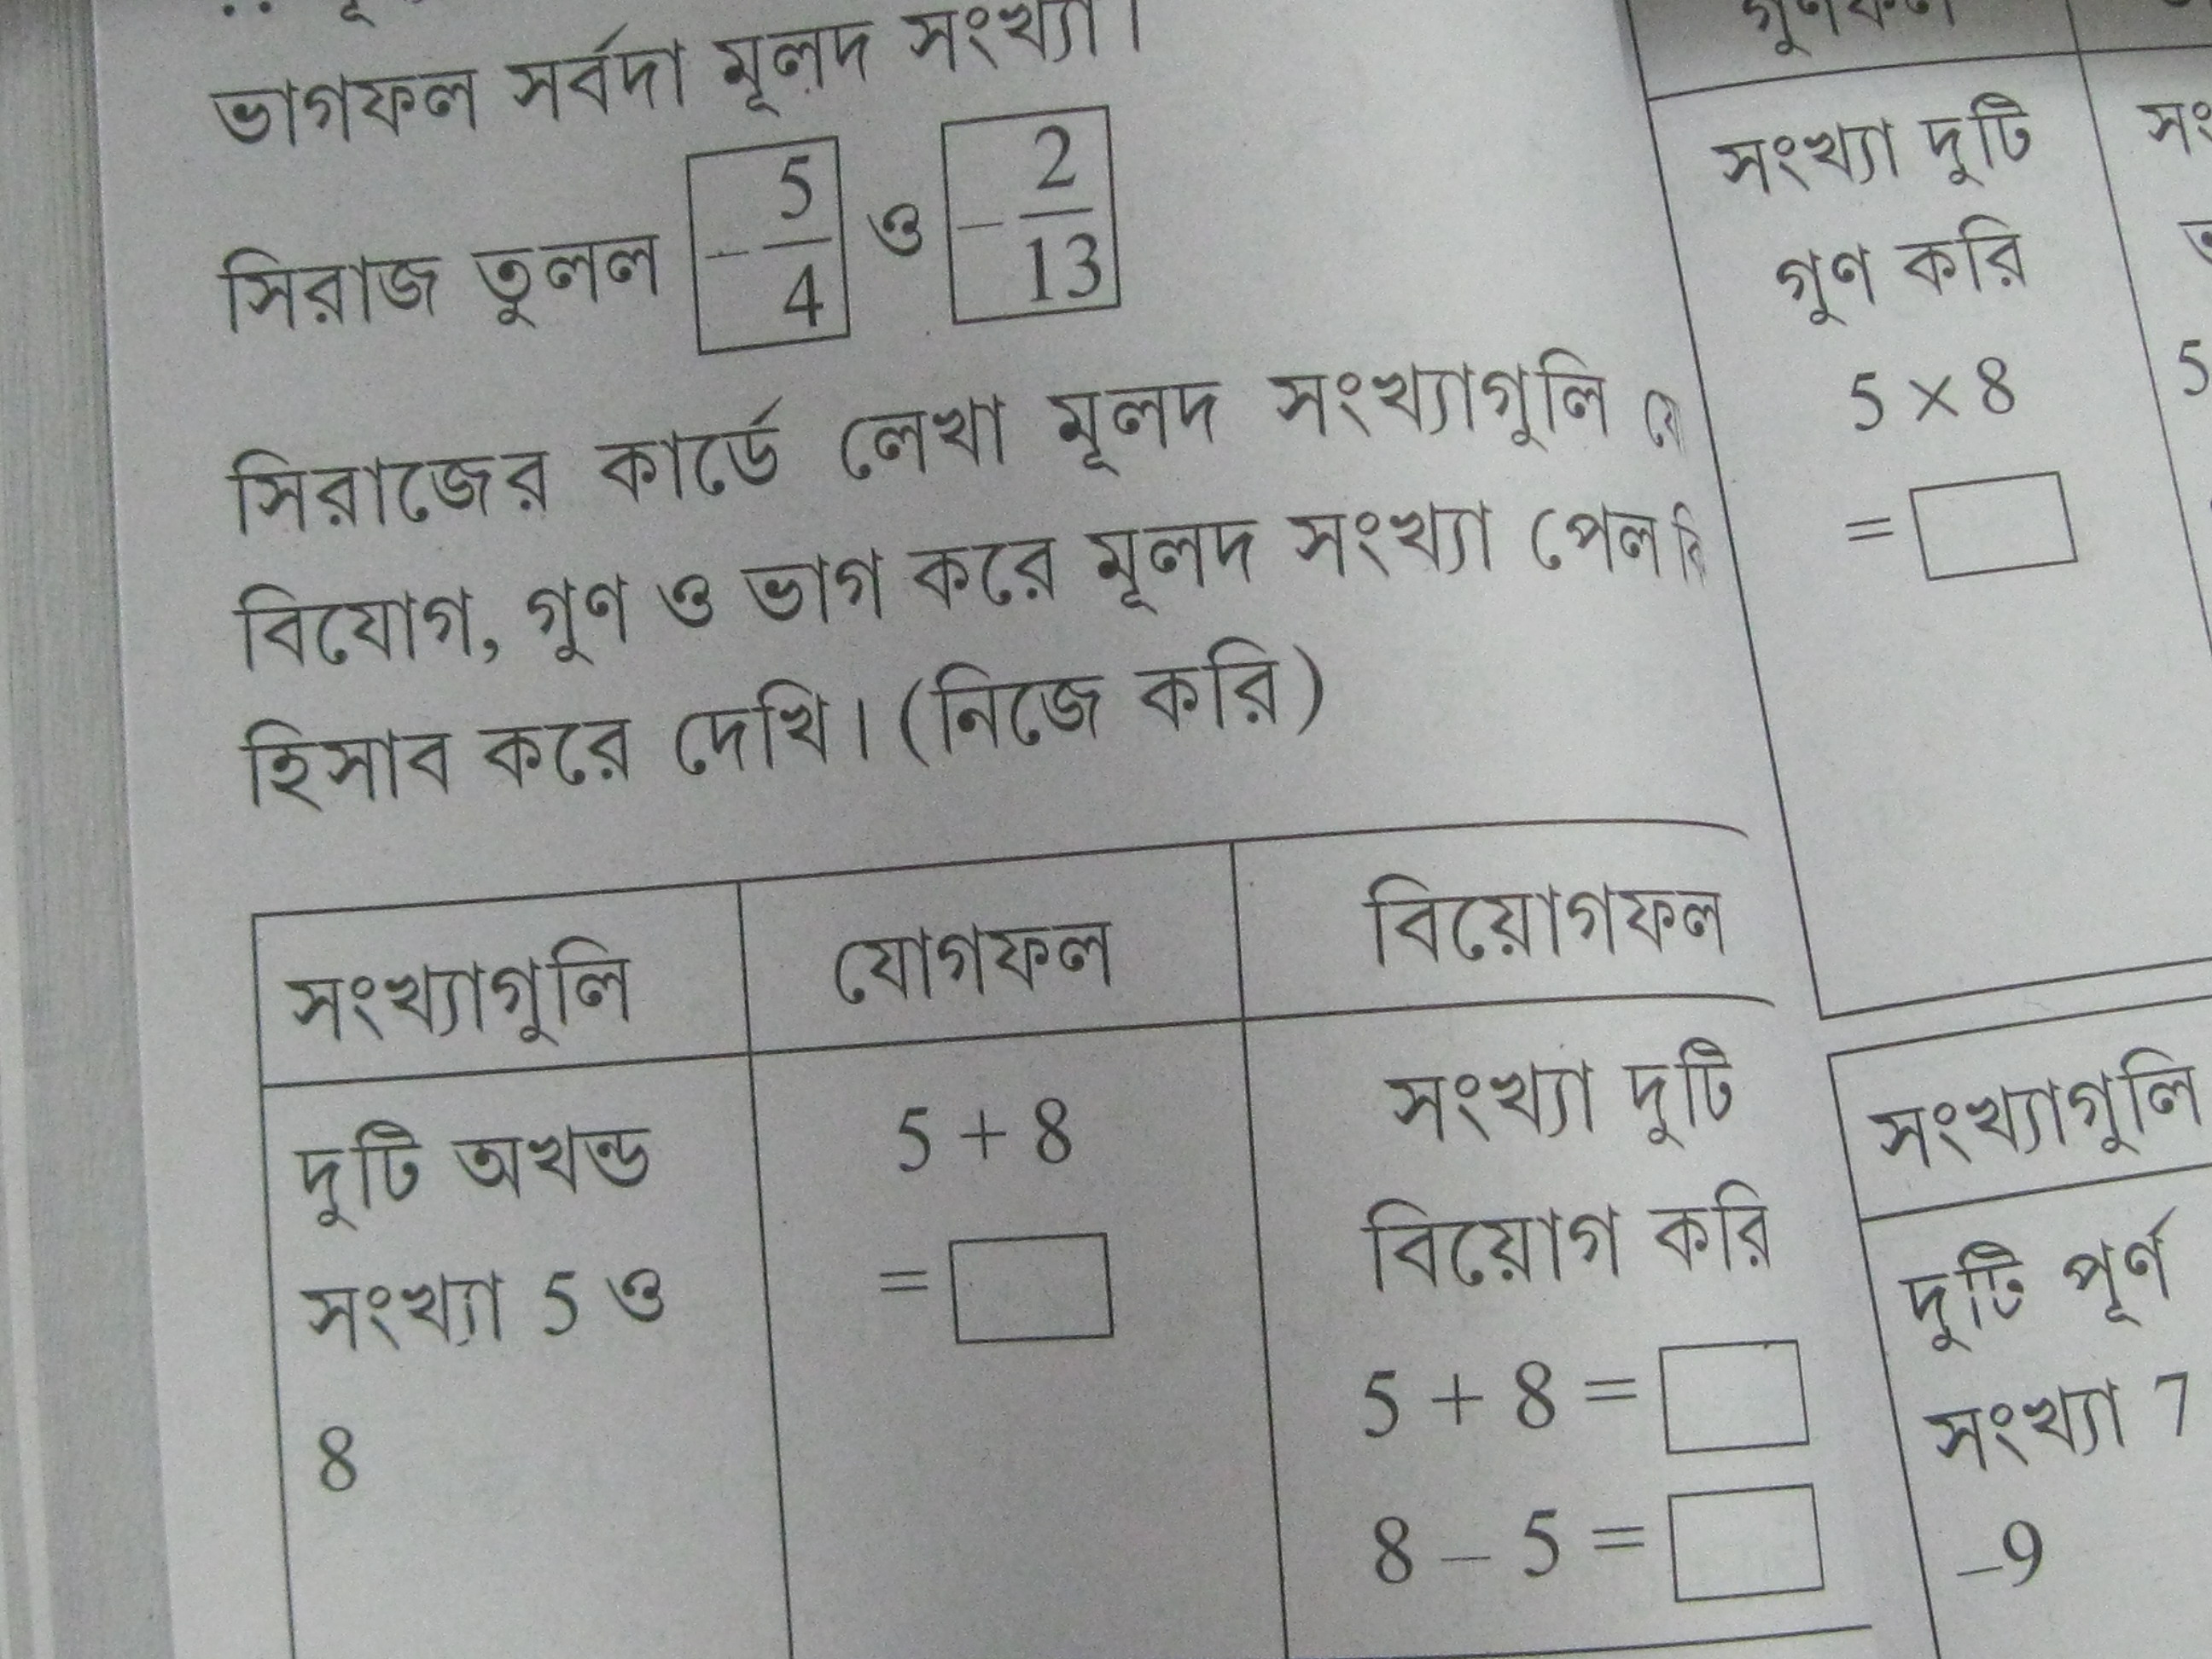 ভাগফল সর্বদা মূলদ সংখ্যা।
সিরাজ তুলল -5/4 ও -2/13
সিরাজের কার্ডে লেখা মূলদ সংখ্যাগুলি
বিযোগ, গুণ ও ভাগ করে মূলদ সংখ্যা পেল
হিসাব করে দেখি। (নিজে করি)
সংখ্যাগুলি যোগফল বিয়োগফল
দুটি অখন্ড 5 + 8 সংখ্যা দুটি
সংখ্যা 5 ও = বিয়োগ করি
8 5 + 8 =
8 – 5 =
গুণফল
সংখ্যা দুটি
গুণ করি
5 × 8 5
=
সংখ্যাগুলি
দুটি পূর্ণ
সংখ্যা 7
–9